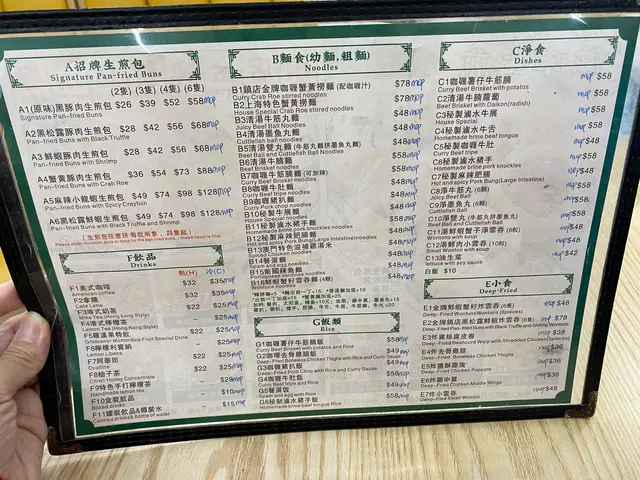 A招牌生煎包
Signature Pan-fried Buns
(2隻) (3隻) (4隻) (6隻)
A1(原味)黑豚肉生煎包 $26 $39 $52 $58mop
Signature Pan-fried Buns
A2黑松露豚肉生煎包 $28 $42 $56 $68mop
Pan-fried Buns with Black Truffle
A3 鮮蝦豚肉生煎包 $28 $42 $56 $68mop
Pan-fried Buns with Shrimp
A4蟹黃豚肉生煎包 $36 $54 $73 $88mop
Pan-fried Buns with Crab Roe
A5麻辣小龍蝦生煎包 $49 $74 $98 $128mop
Pan-fried Buns with Spicy Cryfish
A6黑松露鮮蝦生煎包 $49 $74 $98 $128mop
Pan-fried Buns with Black Truffle and Shrimp
F飲品
Drinks
熱(H) 冷(C)
F1美式咖啡 $32 $35mop
American coffee
F2拿鐵 $32 $35mop
Cafe Latte
F3港式奶茶 $22 $25mop
Milk Tea (Hong kong Style)
F4港式檸檬茶 $22 $25mop
Lemon Tea(Hong Kong Style)
F5羅漢果特飲 $25mop
Grosvenor Momordica Fruit Special Drink
F6檸檬利賓納 $22 $25mop
Lemon Libena
F7阿華田 $22 $25mop
Ovaltine
F8柚子茶 $22 $25mop
Citron Honey Concentrate
F9特色手打檸檬茶 $29mop
Handmade lemon tea
F10盒裝飲品 $10mop
Boxed drinks
F11罐裝飲品&樽裝水 $15mop
Canned drinks& bottle of water
B麵食(幼麵,粗麵)
Noodles
B1鎮店金牌咖喱蟹黃撈麵 (配咖喱汁) $78mop
Curry Crab Roe stirred noodles
B2上海特色蟹黃撈麵 $78mop
House Special Crab Roe stirred noodles
B3清湯牛筋丸麵 $48mop
Juicy Beef Ball Noodles
B4清湯墨魚丸麵 $48mop
Cuttlefish Ball Noodles
B5清湯雙丸麵 (牛筋丸麵拼墨魚丸麵) $48mop
Beef Ball and Cuttlefish Ball Noodles
B6清湯牛腩麵 $58mop
Beef Brisket noodles
B7咖喱牛筋腩麵 (可加辣) $58mop
Curry Beef Brisket noodles
B8咖喱牛肚麵 $58mop
Curry Beef tripe noodles
B9咖喱豬扒麵 $48mop
Curry Pork chop noodles
B10秘製牛展麵 $58mop
House Special noodles
B11秘製滷水豬手麵 $58mop
Homemade brine pork knuckles noodles
B12秘製麻辣肥腸麵
Hot and spicy Pork Bung(Large Intestine)noodles
B13澳門特色滋補雞湯米
Smoked Chicken noodles
B14餐蛋麵
Spam and egg noodles
B15葡國辣魚麵
Portuguese sardines noodles
B16鮮蝦蟹籽雲吞麵 (4顆)
G飯類
Rice
G1咖喱薯仔牛筋腩飯 $58mop
Curry Beef Brisket with potatos and Rice
G2咖喱去骨雞腿飯 $49mop
Deep-fried Boneless Chicken Thigh with Rice and Curry Sauce
G3咖喱豬扒飯 $49mop
Deep-fried Pork Chop with Rice and Curry Sauce
G4咖喱牛肚飯
Curry Beef tripe and Rice
G5餐蛋飯
Spam and egg with Rice
G6秘製滷水牛脷飯
Homemade brine beef tongue Rice
C淨食
Dishes
C1咖喱薯仔牛筋腩 mop $58
Curry Beef Brisket with potatos
C2清湯牛腩蘿蔔 mop $58
Beef Brisket with Daikon(radish)
C3秘製牛展 mop $58
House Special
C4秘製滷水牛舌 mop $58
Homemade brine beef tongue
C5秘製咖喱牛肚 mop $58
Curry Beef tripe
C6秘製滷水豬手 mop $58
Homemade brine pork knuckles
C7秘製麻辣肥腸 mop $58
Hot and spicy Pork Bung(Large Intestine)
C8淨牛筋丸 (6顆) mop $48
Juicy Beef Ball
C9淨墨魚丸 (6顆) mop $48
Cuttlefish Ball
C10淨雙丸 (牛筋丸拼墨魚丸)
Beef Ball and Cuttlefish Ball
Wontons with soup
C12湯鮮肉小雲吞 (10粒)
Small wonton with soup
C13油生菜 mop $42
lettuce with soy sauce
白飯 $10
E小食
Deep-Fried
E1金牌鮮蝦蟹籽炸雲吞(6隻) mop $48
Deep-Fried Wontons(Specials) (6pieces)
Deep-fried Pan-fried Buns with Black Truffle and Shrimp Wontons
E3炸雞絲腐皮卷 mop $38
E4炸去骨雞扒
Deep-fried Boneless Chicken Thigh
E5炸鹽酥雞塊
Deep-Fried Chicken Popcorns
E6炸雞中翼
Deep-Fried Chicken Middle Wings
E7炸小雲吞
Deep-fried Small Wonton